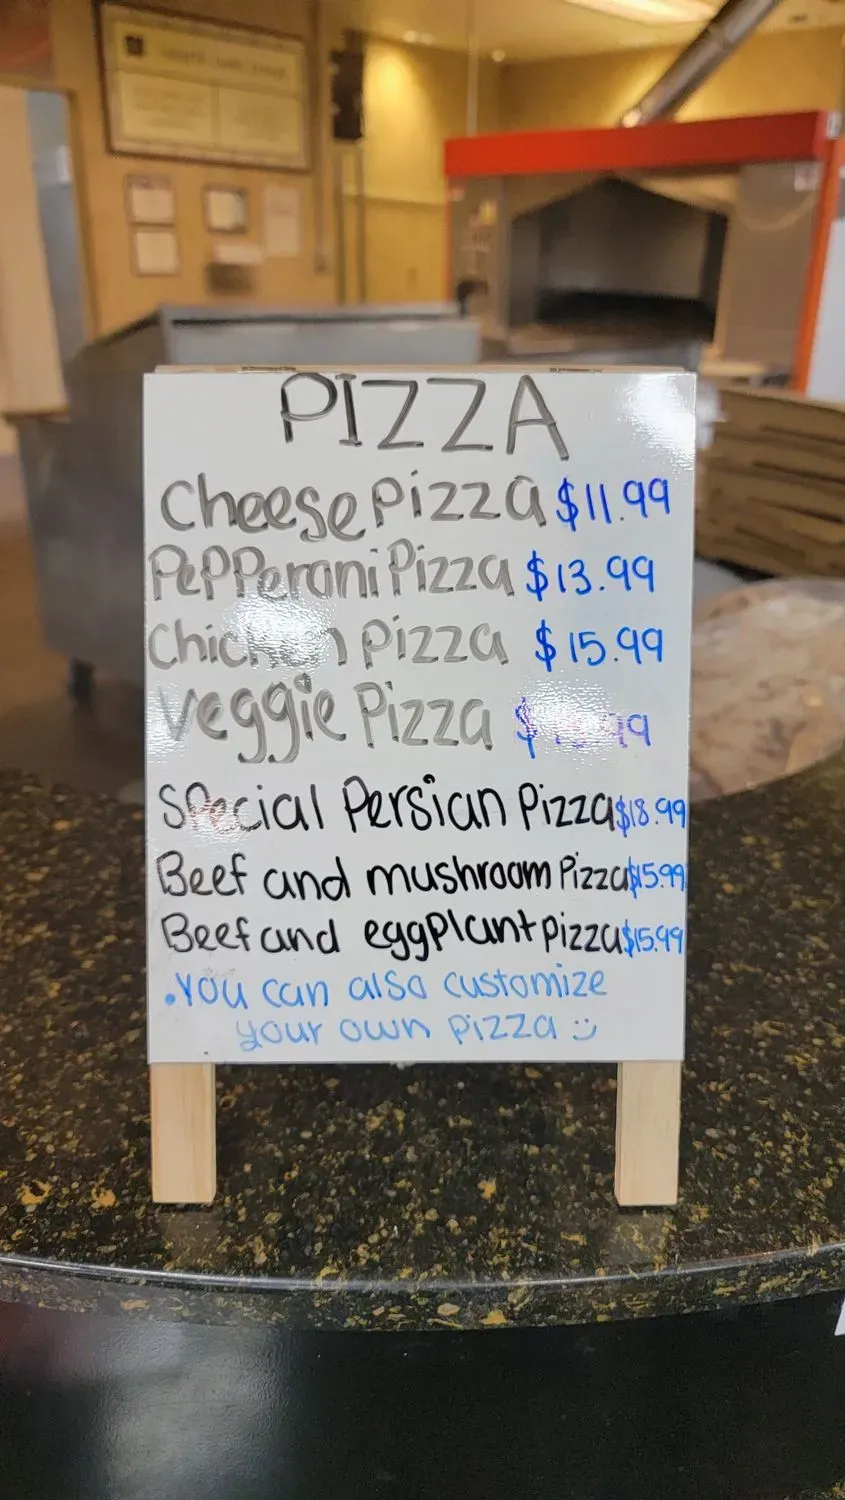 PIZZA
Cheese Pizza $11.99
Pepperoni Pizza $13.99
Chicken Pizza $15.99
Veggie Pizza
Special Persian Pizza $18.99
Beef and mushroom Pizza $15.99
Beef and eggplant pizza $15.99
.You can also customize
your own pizza :)